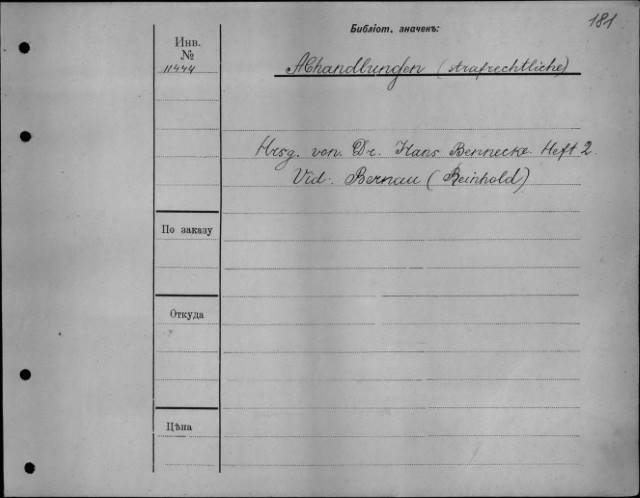 181
Библіот. значекъ:
Инв.
№
11444
Abhandlungen (strafrechtliche)
Hrsg. von. Dr. Hans Bennecke. Heft 2.
Vid. Bernau (Reinhold)
По заказу
Откуда
Цѣна